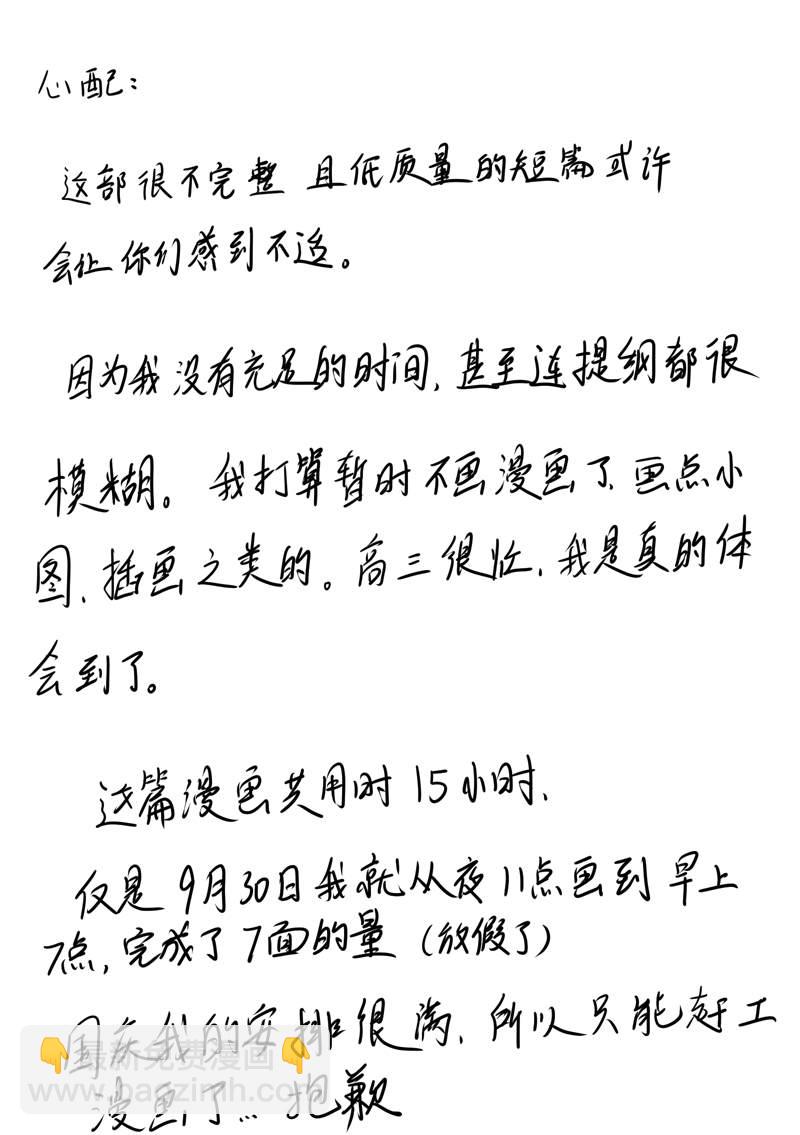 心配：
这部很不完整 且低质量的短篇或许
会让你们感到不适。
因为我没有充足的时间,甚至连提纲都很
模糊。我打算暂时不画漫画了、画点小
图、插画之类的。高三很忙、我是真的体
会到了。
这篇漫画共用时15小时、
仅是9月30日我就从夜11点画到早上
7点,完成了7面的量(放假了)
国庆我的安排很满、所以只能赶工
漫画了… 抱歉
最新免费漫画
www.baozimh.com